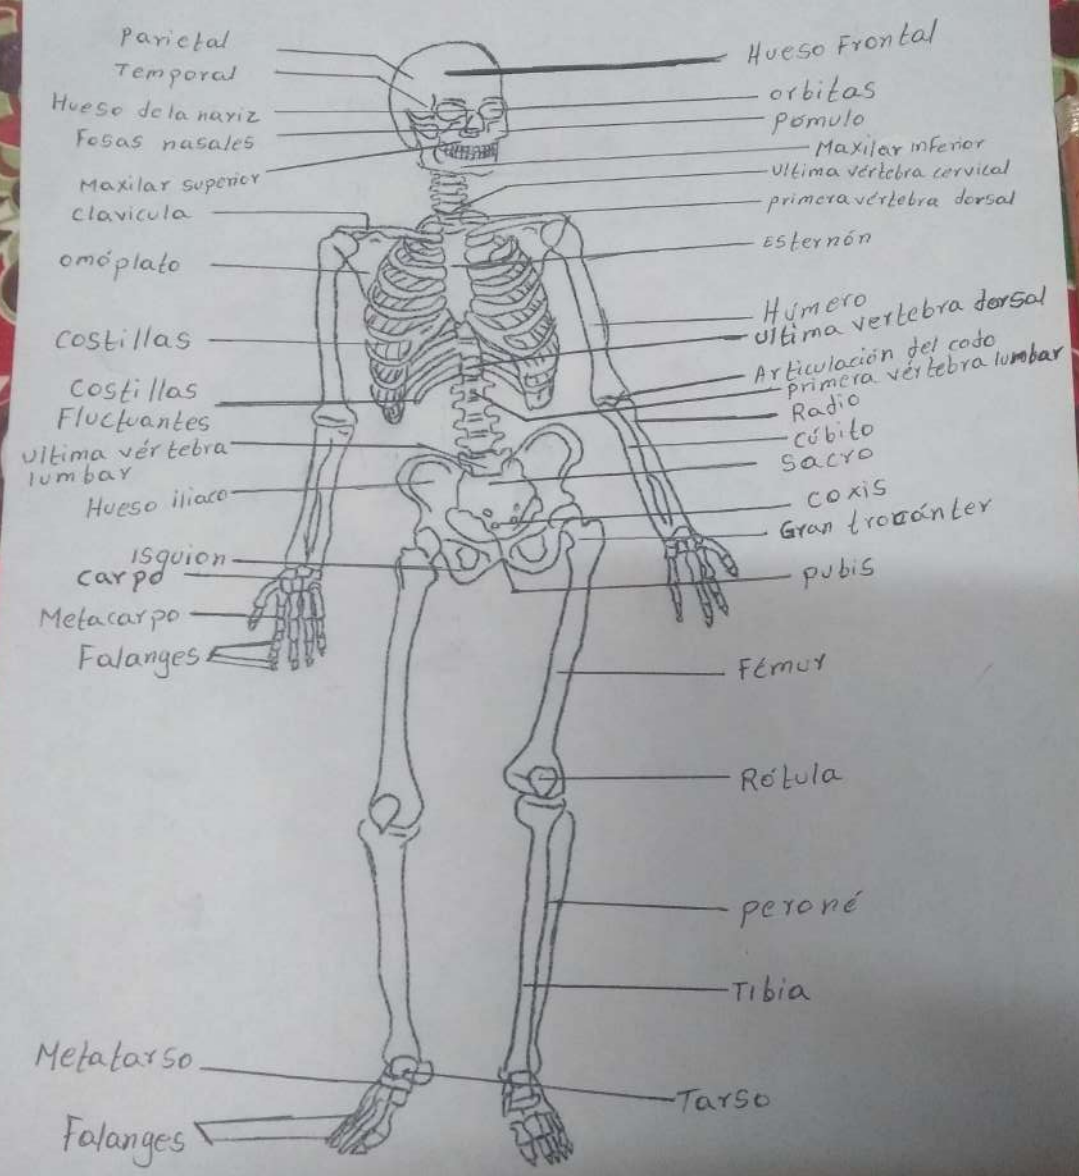 Parietal
Temporal
Hueso de la nariz
Fosas nasales
Maxilar superior
clavicula
omóplato
costillas
costillas
Fluctuantes
ultima vértebra
lumbar
Hueso iliaco
Isquion
carpo
Metacarpo
Falanges
Metatarso
Falanges
Hueso Frontal
orbitas
pómulo
Maxilar inferior
ultima vértebra cervical
primera vértebra dorsal
Esternón
Húmero
ultima vertebra dorsal
Articulación del codo
primera vértebra lumbar
Radio
Cúbito
Sacro
coxis
Gran trocánter
pubis
Fémur
Rótula
peroné
Tibia
Tarso